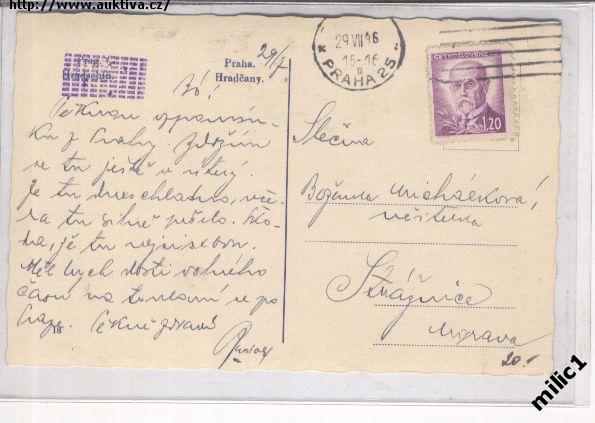 http://www.auktiva.cz/
Prag.
Hradschin.
Praha.
Hradčany.
29/7
29 VII 46
15-16
PRAHA 25
ČESKOSLOVENSKO
1,20
z Prahy. Zdržím
se tu ještě v úterý.
Je tu dnes chladno, vče-
ra tu silně pršelo. Ško-
da, že tu nejsi sebou.
Měl bych dosti volného
času na toulání se po
Praze.
18
Pěkně zdraví
Slečna
Božena Michálková,
učitelka
Strážnice
Morava
20.-
milic1